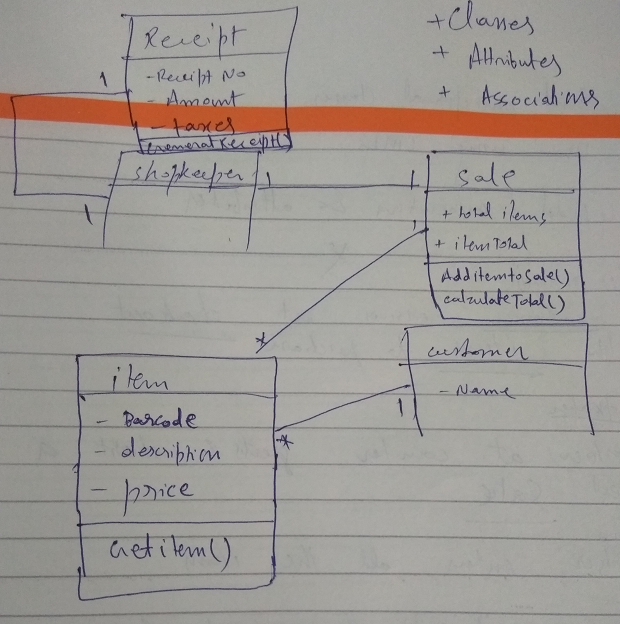 Receipt
- Receipt No
- Amount
- taxes
GenerateReceipt()
+ Classes
+ Attributes
+ Associations
1
1
shopkeeper
1
1
sale
+ total items
+ itemTotal
AdditemtoSale()
calculateTotal()
1
*
customer
- Name
1
*
item
- Barcode
- description
- price
Getitem()